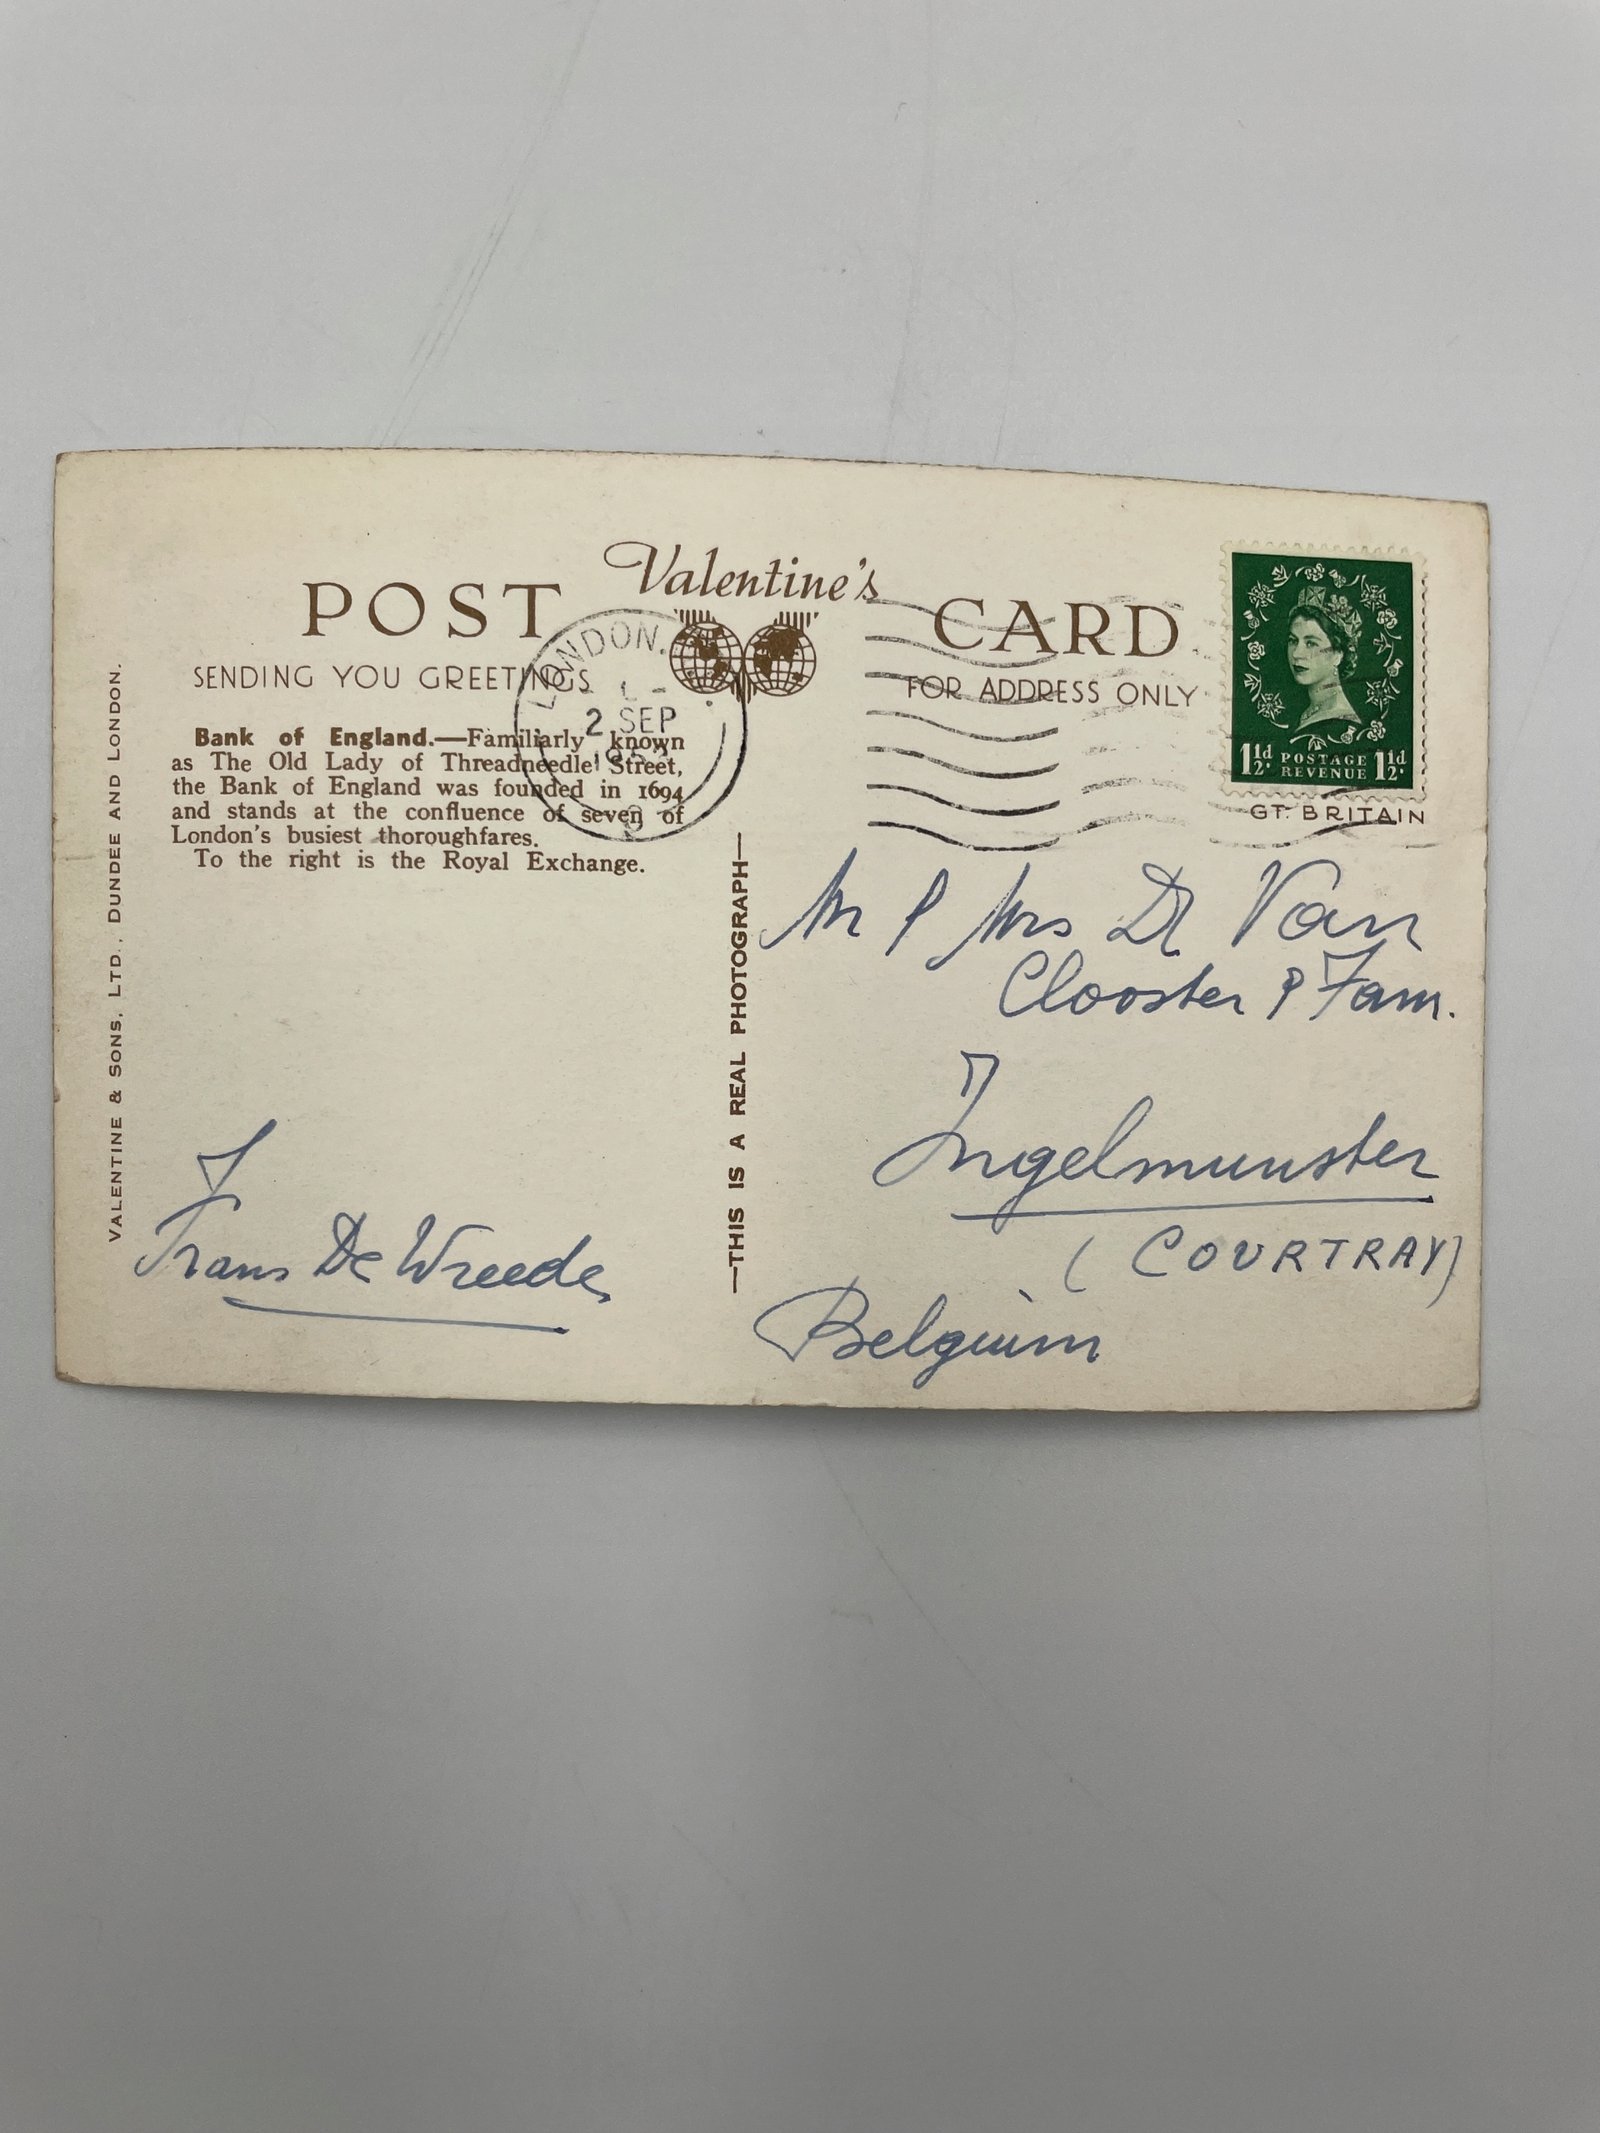 Valentine's
POST CARD
SENDING YOU GREETINGS
FOR ADDRESS ONLY
LONDON.
2 SEP
Bank of England.—Familiarly known
as The Old Lady of Threadneedle Street,
the Bank of England was founded in 1694
and stands at the confluence of seven of
London's busiest thoroughfares.
To the right is the Royal Exchange.
VALENTINE & SONS, LTD., DUNDEE AND LONDON.
—THIS IS A REAL PHOTOGRAPH—
1½d POSTAGE 1½d
REVENUE
GT. BRITAIN
Frans De Wreede
Mr & Mrs Van
Clooster & Fam.
Ingelmunster
(COURTRAY)
Belgium